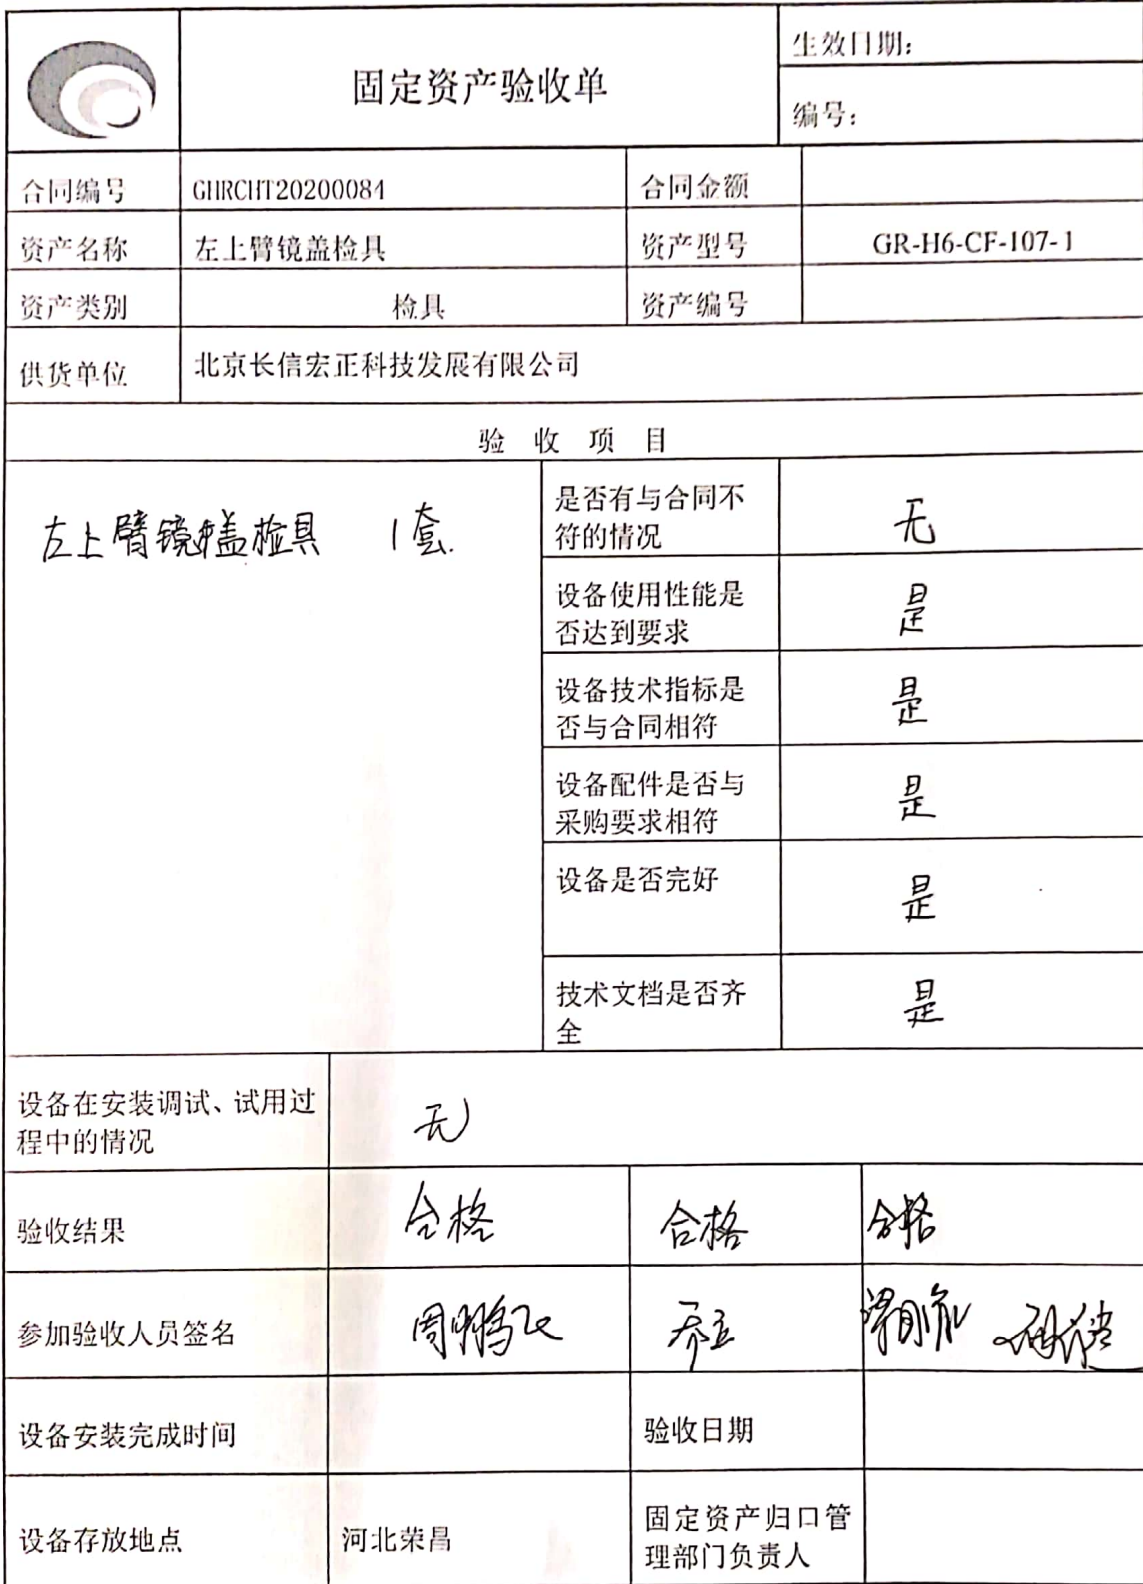 固定资产验收单
生效日期：
编号：
合同编号 GHRCHT20200084 合同金额
资产名称 左上臂镜盖检具 资产型号 GR-H6-CF-107-1
资产类别 检具 资产编号
供货单位 北京长信宏正科技发展有限公司
验 收 项 目
左上臂镜盖检具 1套.
是否有与合同不
符的情况 无
设备使用性能是
否达到要求 是
设备技术指标是
否与合同相符 是
设备配件是否与
采购要求相符 是
设备是否完好 是
技术文档是否齐
全 是
设备在安装调试、试用过
程中的情况 无
验收结果 合格 合格 合格
参加验收人员签名 周鹏飞 乔立
设备安装完成时间 验收日期
设备存放地点 河北荣昌 固定资产归口管
理部门负责人